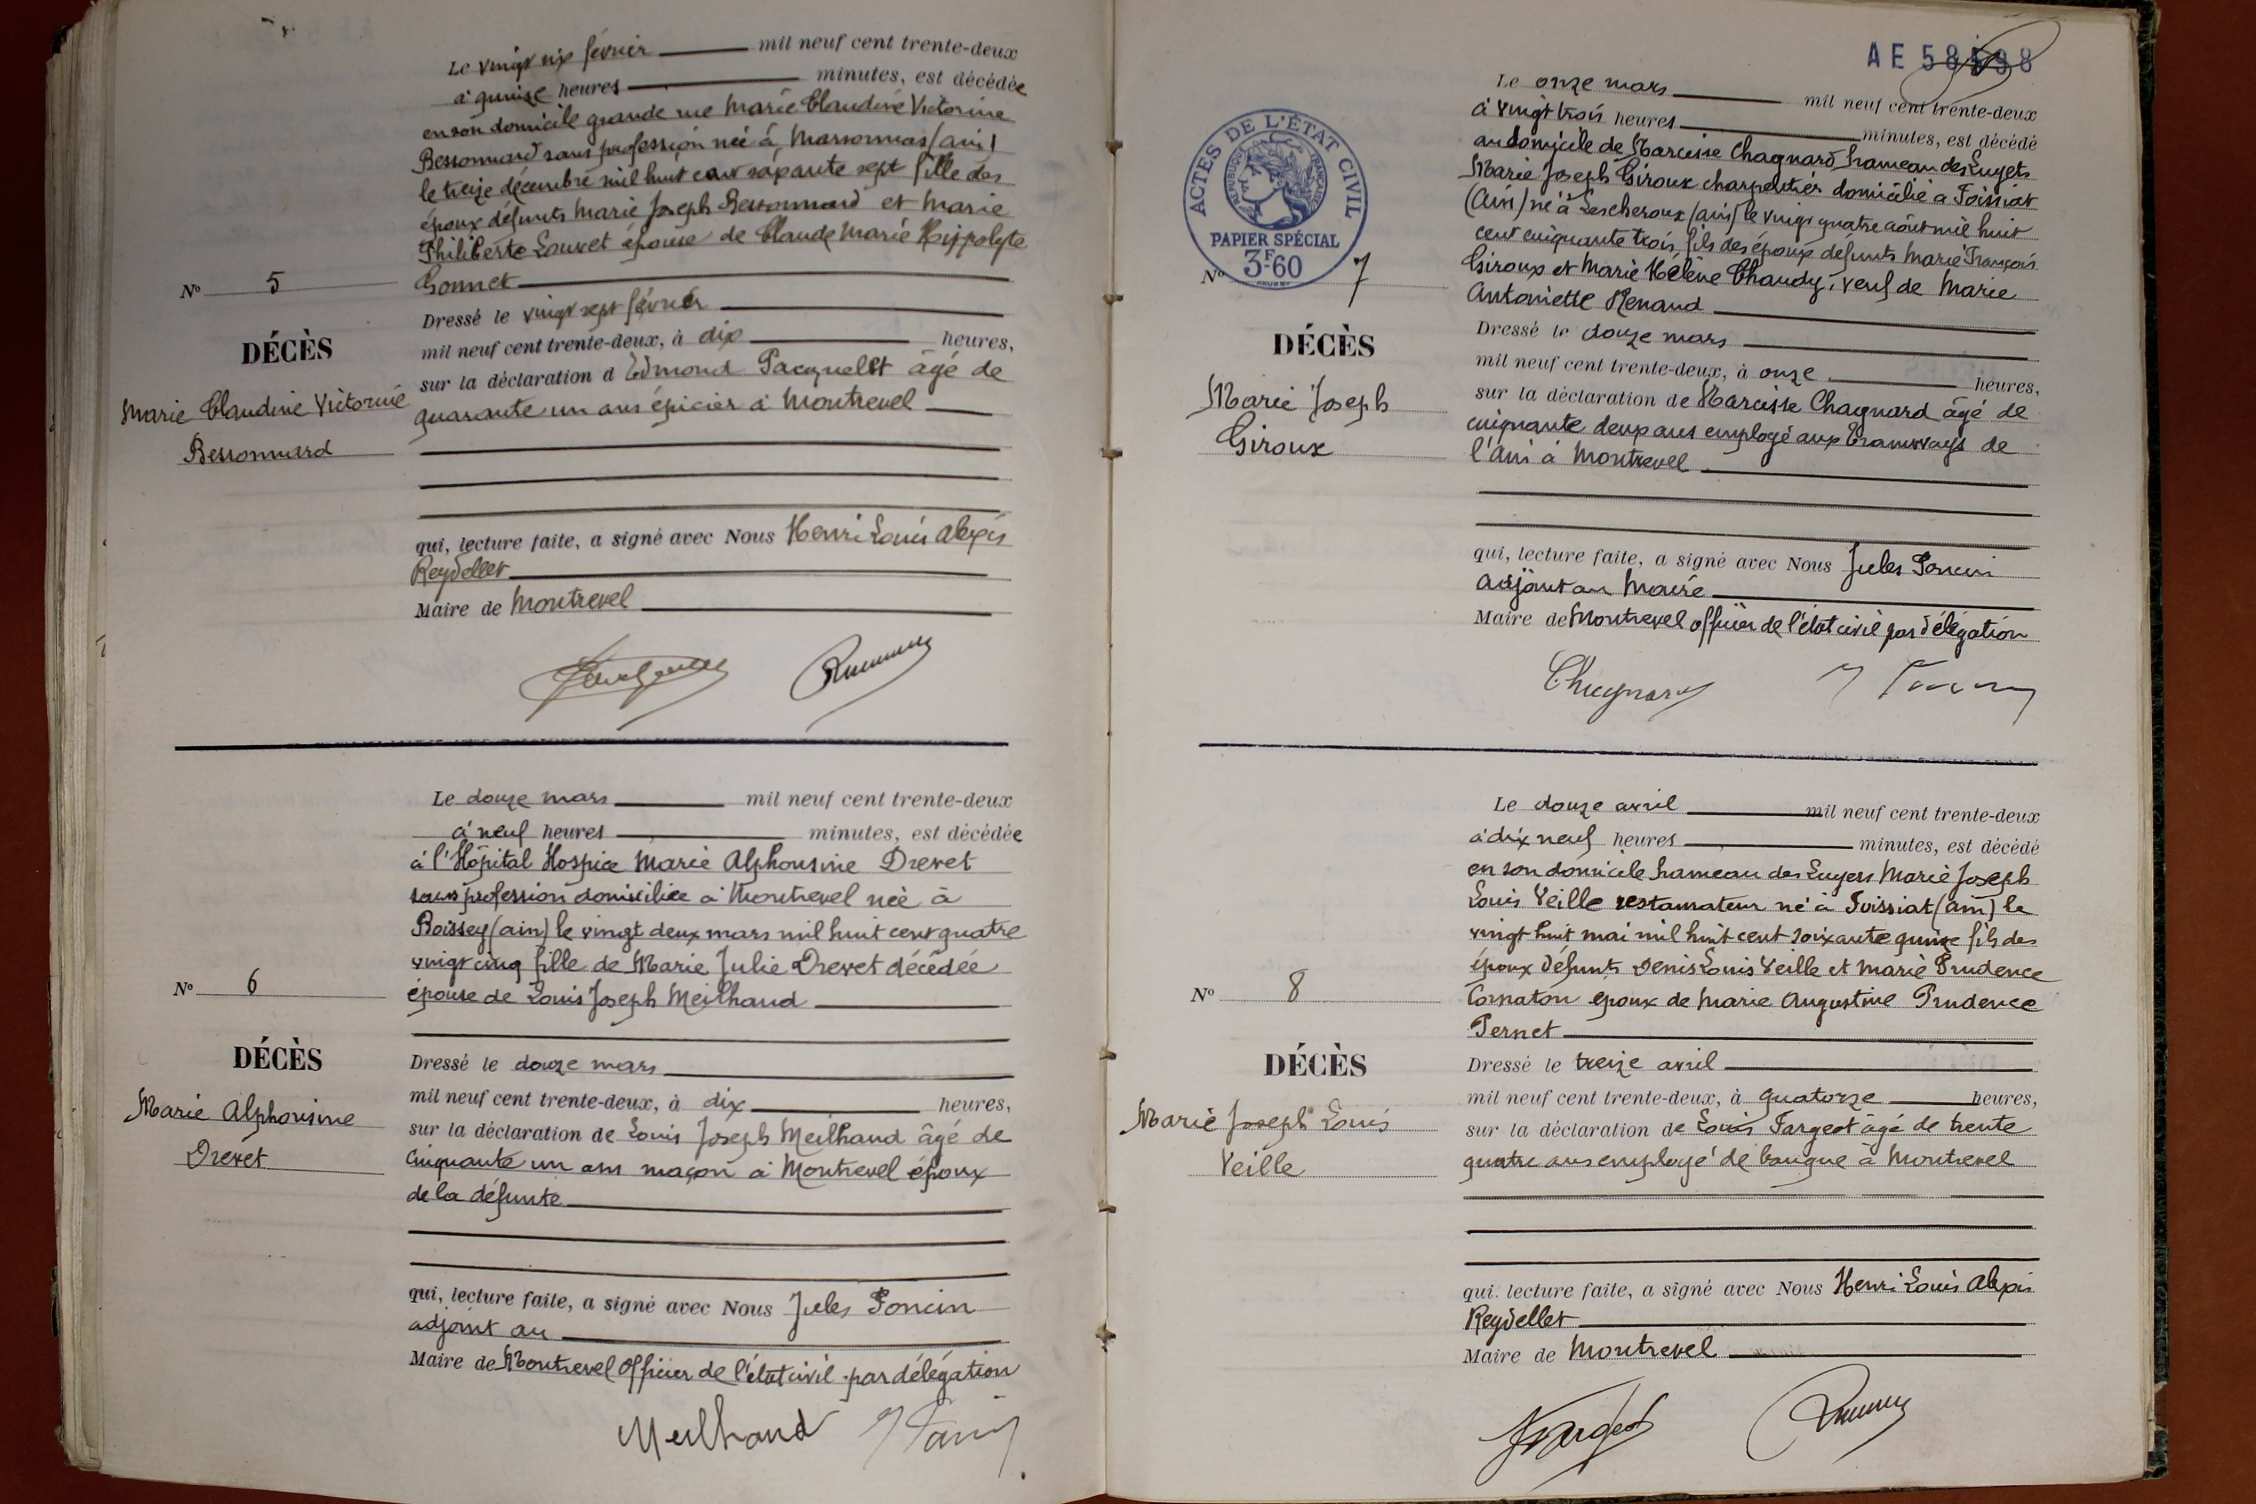 Le vingt six février mil neuf cent trente-deux
à quinze heures minutes, est décédée
en son domicile grande rue Marie Claudine Victorine
Bessonnard sans profession née à Marsonnas (ain)
le treize décembre mil huit cent soixante sept fille des
époux défunts Marie Joseph Bessonnard et Marie
Philiberte Louvet épouse de Claude Marie Hippolyte
Gonnet
Nº 5
DÉCÈS
Marie Claudine Victorine
Bessonnard
Dressé le vingt sept février
mil neuf cent trente-deux, à dix heures,
sur la déclaration d Edmond Pacquelet âgé de
quarante un ans épicier à Montrevel
qui, lecture faite, a signé avec Nous Henri Louis Alexis
Reydellet
Maire de Montrevel
Le douze mars mil neuf cent trente-deux
à neuf heures minutes, est décédée
à l'Hôpital Hospice Marie Alphonsine Drevet
sans profession domiciliée à Montrevel née à
Boissey (ain) le vingt deux mars mil huit cent quatre
vingt cinq fille de Marie Julie Drevet décédée
épouse de Louis Joseph Meilhaud
Nº 6
DÉCÈS
Marie Alphonsine
Drevet
Dressé le douze mars
mil neuf cent trente-deux, à dix heures,
sur la déclaration de Louis Joseph Meilhaud âgé de
cinquante un ans maçon à Montrevel époux
de la défunte
qui, lecture faite, a signé avec Nous Jules Poncin
adjoint au
Maire de Montrevel officier de l'état civil par délégation
Meilhaud
AE 58
ACTES DE L'ÉTAT CIVIL
RÉPUBLIQUE FRANÇAISE
PAPIER SPÉCIAL
3F-60
Le onze mars mil neuf cent trente-deux
à vingt trois heures minutes, est décédé
au domicile de Narcisse Chagnard hameau des Luyets
Marie Joseph Giroux charpentier domicilié à Foissiat
(Ain) né à Lescheroux (ain) le vingt quatre août mil huit
cent cinquante trois fils des époux défunts Marie François
Giroux et Marie Hélène Chaudy, veuf de Marie
Antoniette Renaud
Nº 7
DÉCÈS
Marie Joseph
Giroux
Dressé le douze mars
mil neuf cent trente-deux, à onze heures,
sur la déclaration de Narcisse Chagnard âgé de
cinquante deux ans employé aux tramways de
l'Ain à Montrevel
qui, lecture faite, a signé avec Nous Jules Poncin
adjoint au Maire
Maire de Montrevel officier de l'état civil par délégation
Chagnard
Le douze avril mil neuf cent trente-deux
à dix neuf heures minutes, est décédé
en son domicile hameau des Luyers Marie Joseph
Louis Veille restaurateur né à Foissiat (ain) le
vingt huit mai mil huit cent soixante quinze fils des
époux défunts Denis Louis Veille et Marie Prudence
Cornaton époux de Marie Augustine Prudence
Pernet
Nº 8
DÉCÈS
Marie Joseph Louis
Veille
Dressé le treize avril
mil neuf cent trente-deux, à quatorze heures,
sur la déclaration de Louis Fargeot âgé de trente
quatre ans employé de banque à Montrevel
qui, lecture faite, a signé avec Nous Henri Louis Alexis
Reydellet
Maire de Montrevel
Fargeot